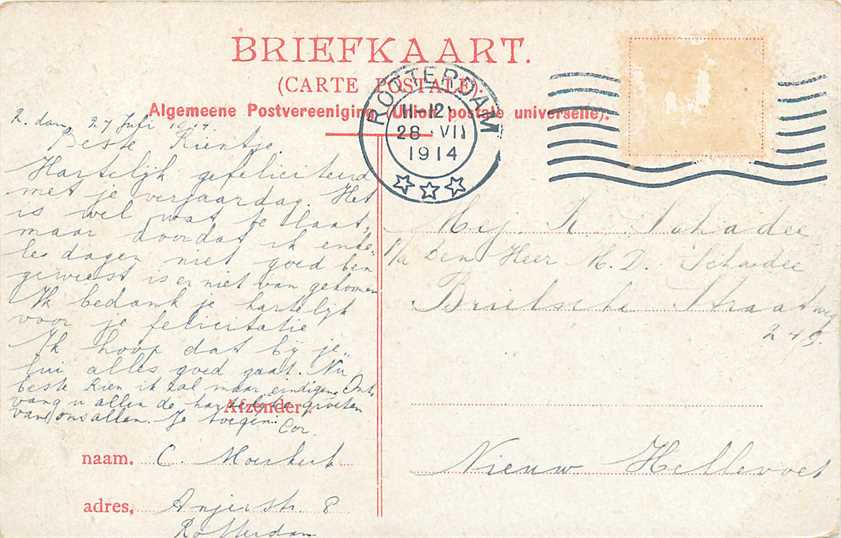 BRIEFKAART.
(CARTE POSTALE).
Algemeene Postvereeniging (Union postale universelle).
ROTTERDAM
11-12
28 VII
1914
R. dam 27 Juli 1914
Beste Rientje
Hartelijk gefeliciteerd
met je verjaardag. Het
is wel wat te laat,
maar doordat ik enke-
les dagen niet goed ben
geweest is er niet van gekomen
Ik bedank je hartelijk
voor je felicitatie
Ik hoop dat bij je
lui alles goed gaat. Nu
beste Rien ik zal maar eindigen Ont-
vang u allen de hartelijke groeten
van ons allen. Je
Cor.
Afzender:
naam. C.
adres, Anjerstr. 8
Rotterdam
Mej. R. Schadee
p/a Den Heer M. D. Schadee
Brielsche Straatweg
Nieuw Hellevoet